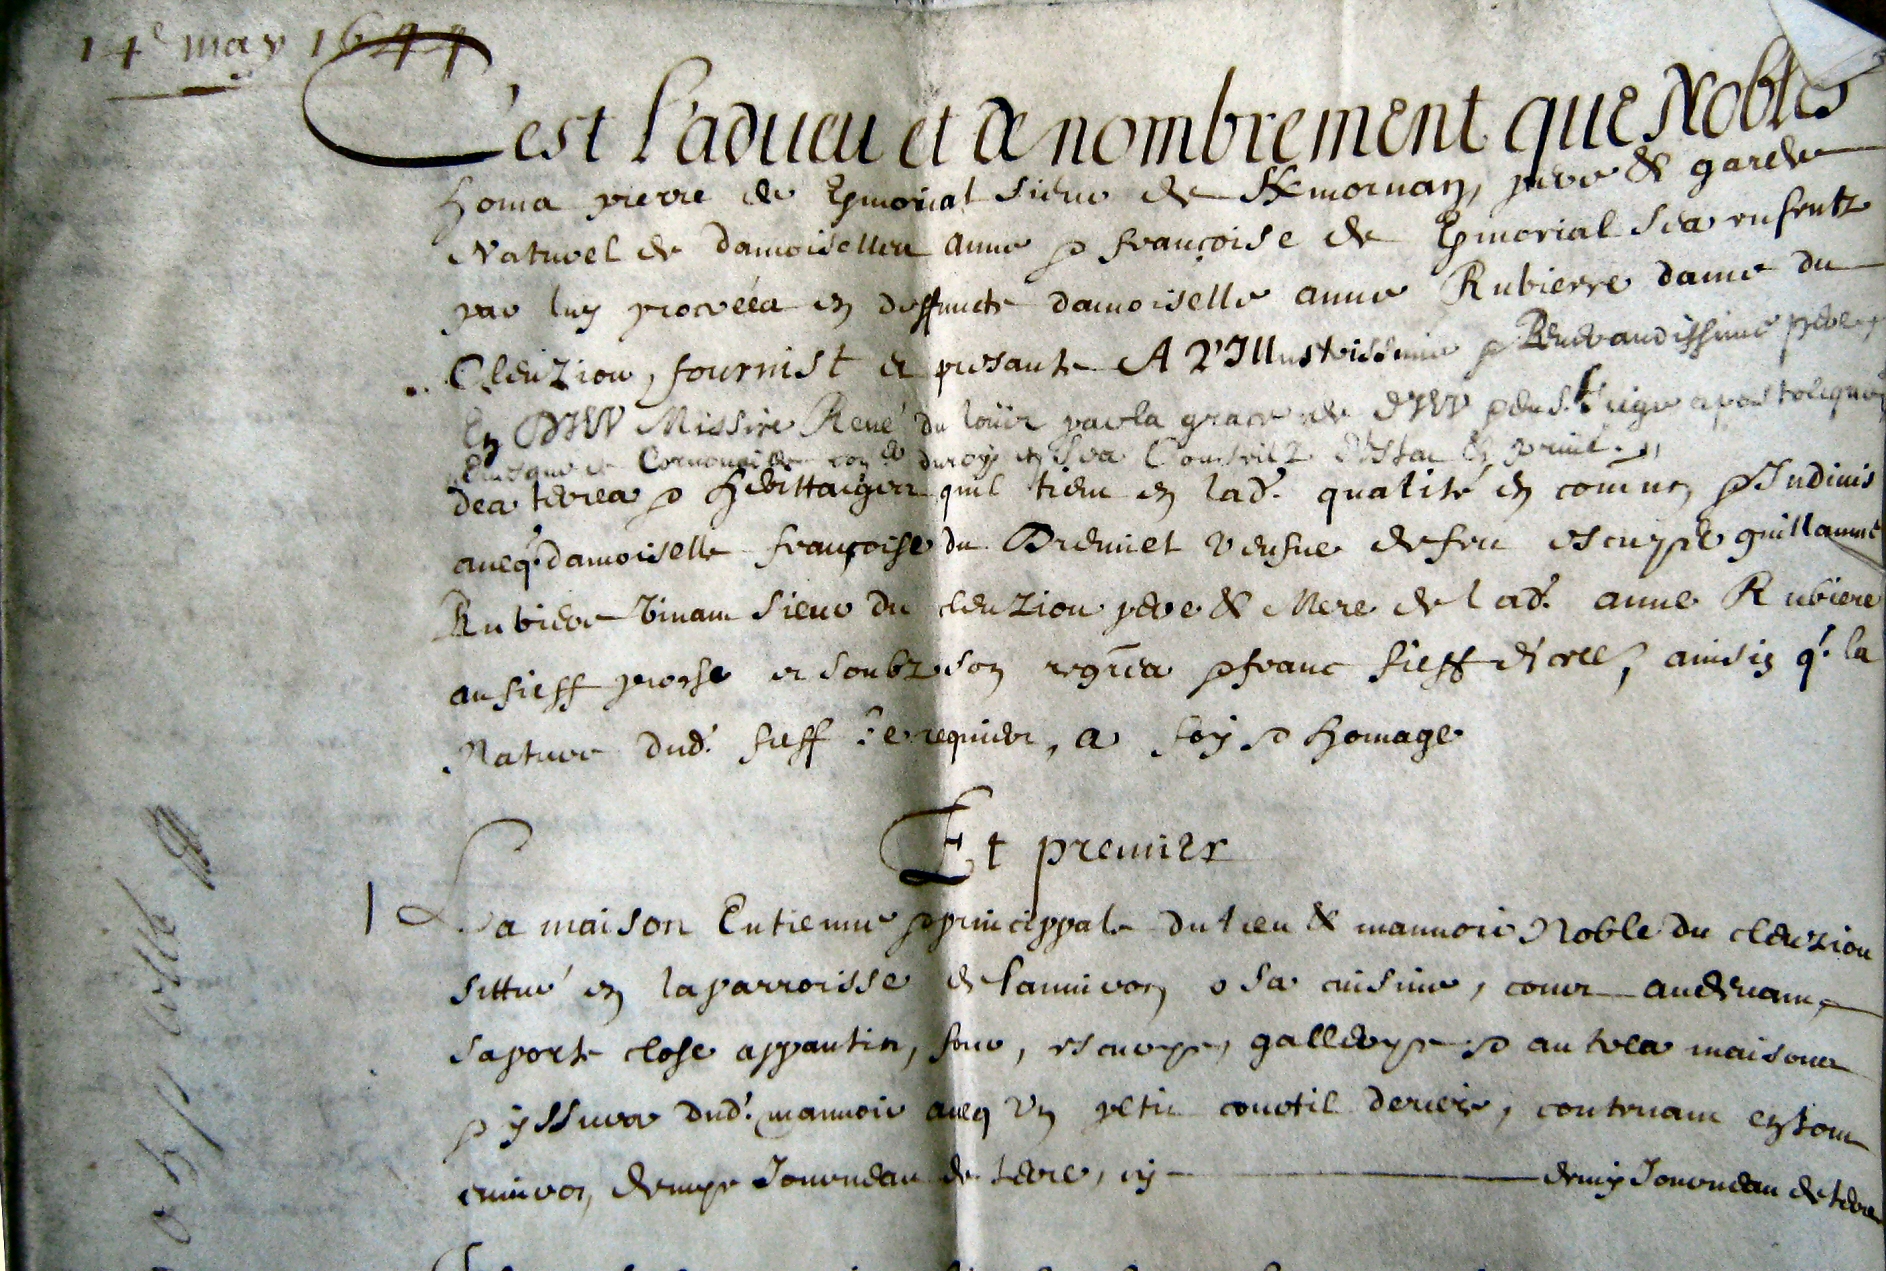 14e may 1644
C'est l'adueu et denombrement que Nobles
homs pierre de Kmorial sieur de pere & garde
Naturel de damoiselles anne & françoise de Kmorial ses enfentz
par luy procréés en deffuncte damoiselle anne Rubierre dame du
Cleuziou, fournist et presante A l'Illustrissime & Reuerandissime pere
En DIEV Missire René du loüet par la grace de DIEV & du St siege apostolique
Euesque de Cornouaille con.er du roy en ses Conseilz d'Estat & priué
des terres & herittaiges quil tient en lad. qualité en comun & Indiuis
aueq damoiselle françoise du Dreniet veufue de feu escuyer guillaume
Rubiere viuant sieur du cleuziou pere & Mere de lad. anne Rubiere
au fieff proche et soubz son & franc fieff d'icell, ainsin q. la
Nature dud. fieff le requier, a foy & homage
Et premier
1 La maison Entienne & princippale du lieu & mannoir Noble du cleuziou
sittué en la parroisse de lanniron o sa cuisine, cour au deuant,
sa porte close appantis, four, escurye, gallerye & autres maisons
& yssues dud. mannoir aueq vn petit courtil deriere, contenant en tout
enuiron demye Journeau de terre, cy demy Journeau de terre